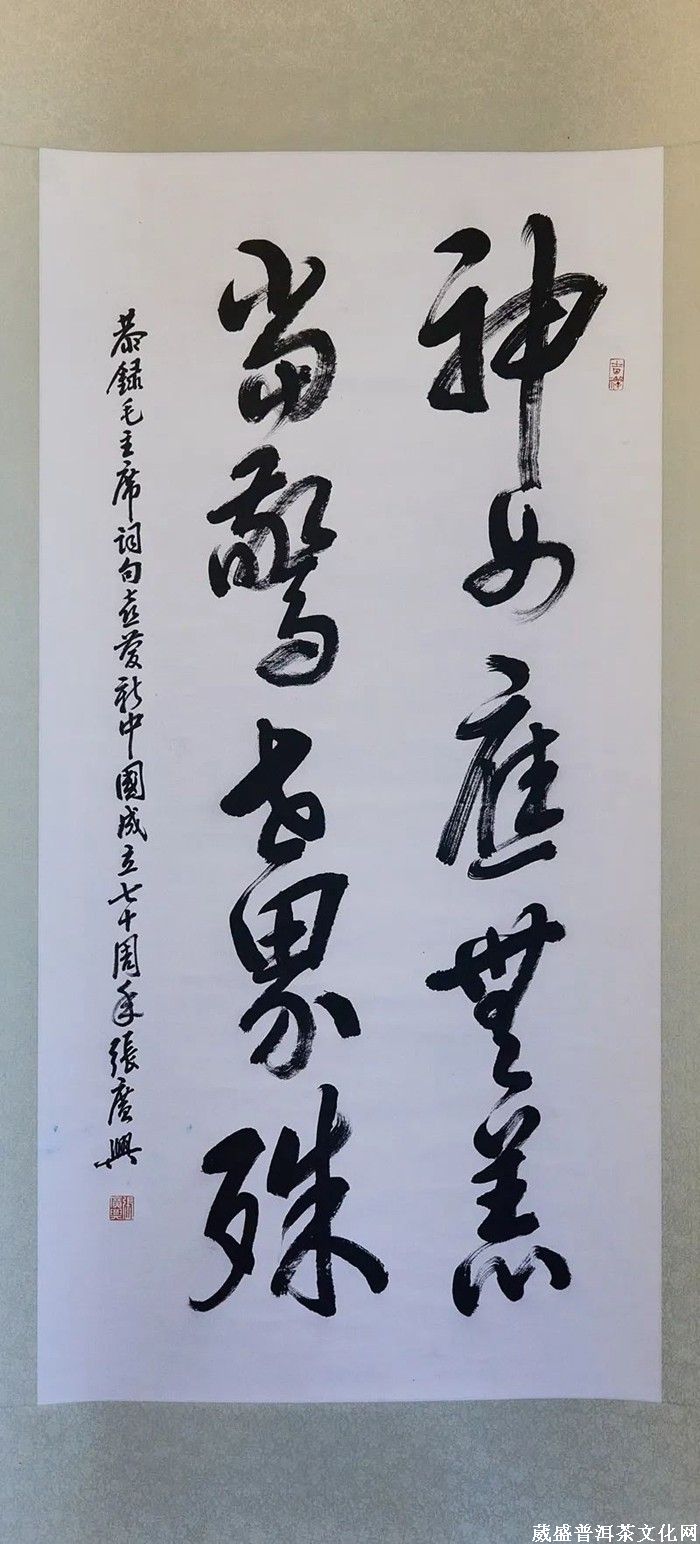 神女應無恙
當驚世界殊
恭録毛主席詞句喜慶新中國成立七十周年張廣興
張廣興
葳盛普洱茶文化网